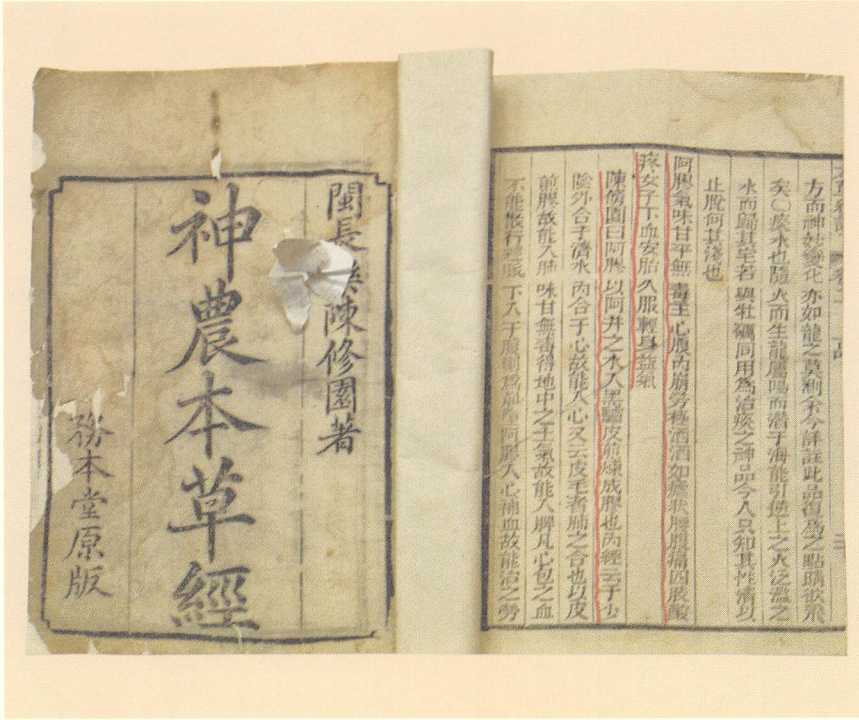 閩長陳修園著
神農本草經
務本堂原版
方而神妙變化亦如龍之莫測余今詳註此品復爲之點睛欲飛
矣○痰水也隨火而生龍屬陽而潛于海能引逆上之火泛濫之
水而歸其宅若與牡礪同用爲治痰之神品今人只知其性濇以
止脫何其淺也
阿膠氣味甘平無毒主心腹內崩勞極洒洒如瘧狀腰腹痛四肢酸
疼女子下血安胎久服輕身益氣
陳修園曰阿膠以阿井之水入黑驢皮煎煉成膠也內經云手少
陰外合于濟水內合于心故能入心又云皮毛者肺之合也以皮
煎膠故能入肺味甘無毒得地中之土氣故能入脾凡心包之血
不能散行經脈下入于腹則爲崩墮阿膠入心補血故能治之勞